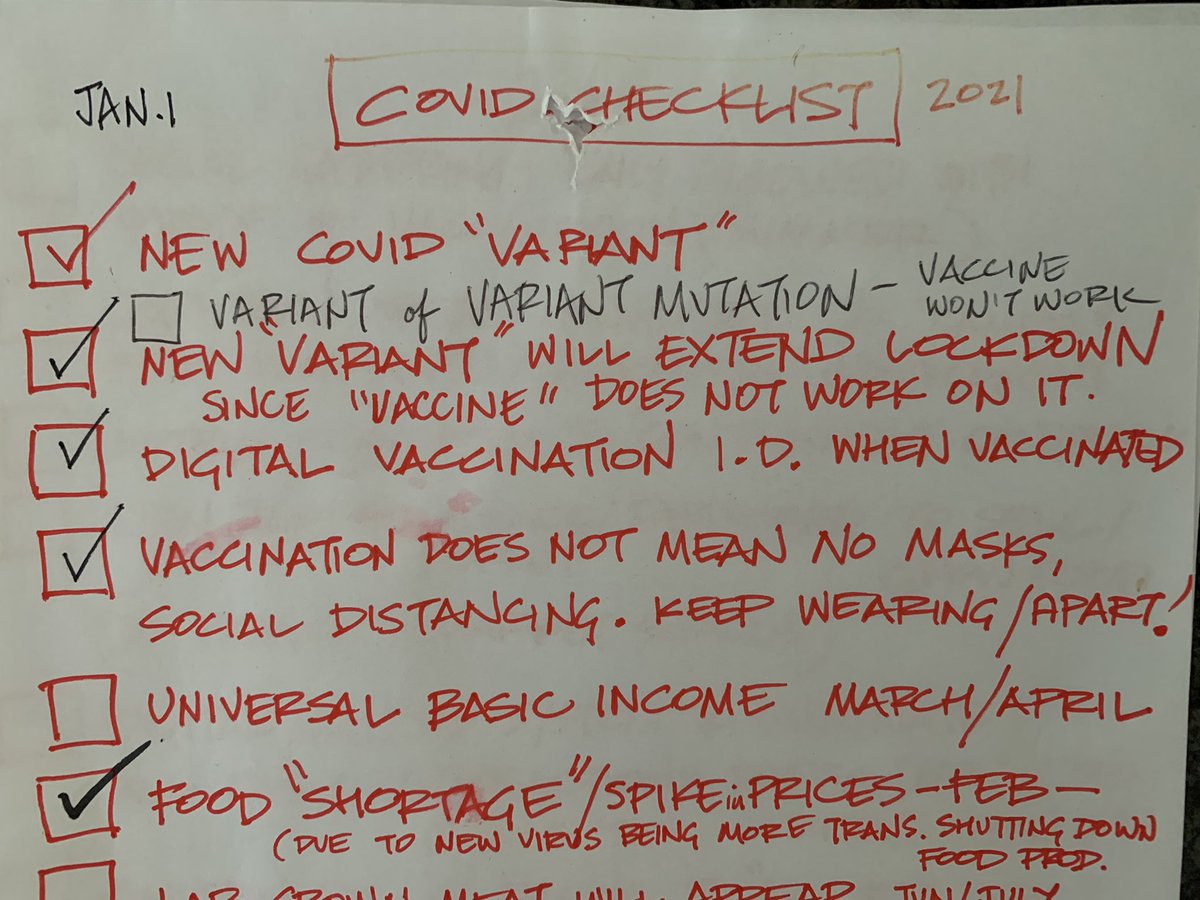 JAN.1 COVID CHECKLIST 2021
NEW COVID "VARIANT"
VARIANT of VARIANT MUTATION - VACCINE
WON'T WORK
NEW "VARIANT" WILL EXTEND LOCKDOWN
SINCE "VACCINE" DOES NOT WORK ON IT.
DIGITAL VACCINATION I.D. WHEN VACCINATED
VACCINATION DOES NOT MEAN NO MASKS,
SOCIAL DISTANCING. KEEP WEARING/APART!
UNIVERSAL BASIC INCOME MARCH/APRIL
FOOD "SHORTAGE"/SPIKE in PRICES - FEB -
(DUE TO NEW VIRUS BEING MORE TRANS. SHUTTING DOWN
FOOD PROD.
LAB GROWN MEAT WILL APPEAR JUN/JULY